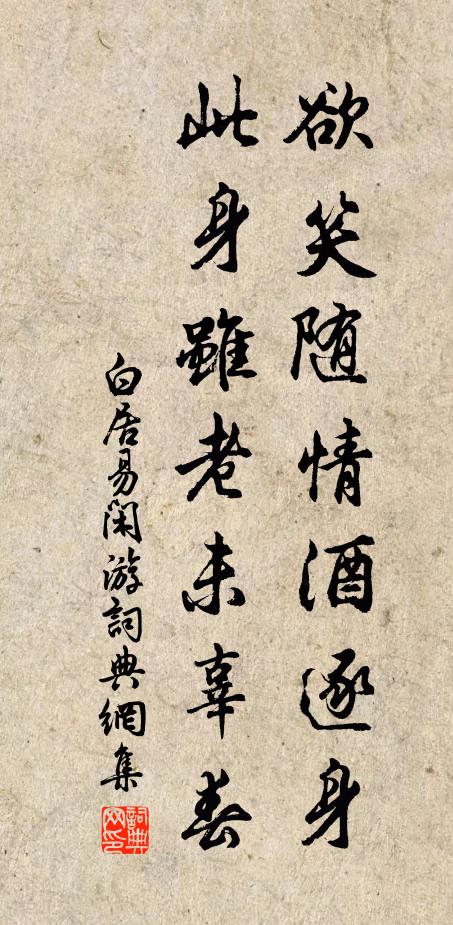 欲笑随情酒逐身
此身雖老未辜春
白居易閑游詞典網集
詞典網印